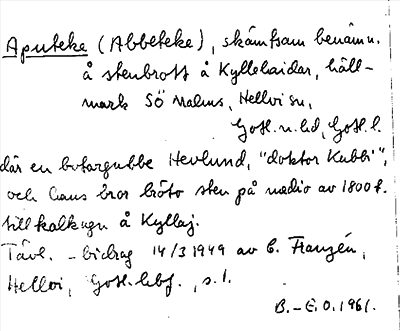 Aputeke (Abbeteke), skämtsam benämn.
å stenbrott å Kyllehaidar, häll-
mark SÖ Malms, Hellvi sn,
Gotl. n. hd, Gotl. l.
där en botargubbe Hevlund, "doktor Kubbi",
och hans bror bröto sten på medio av 1800 t.
till kalkugn å Kyllaj.
Tävl. - bidrag 14/3 1949 av C. Franzén,
Hellvi, Gotl. , s. 1.
B. - E. O. 1961.